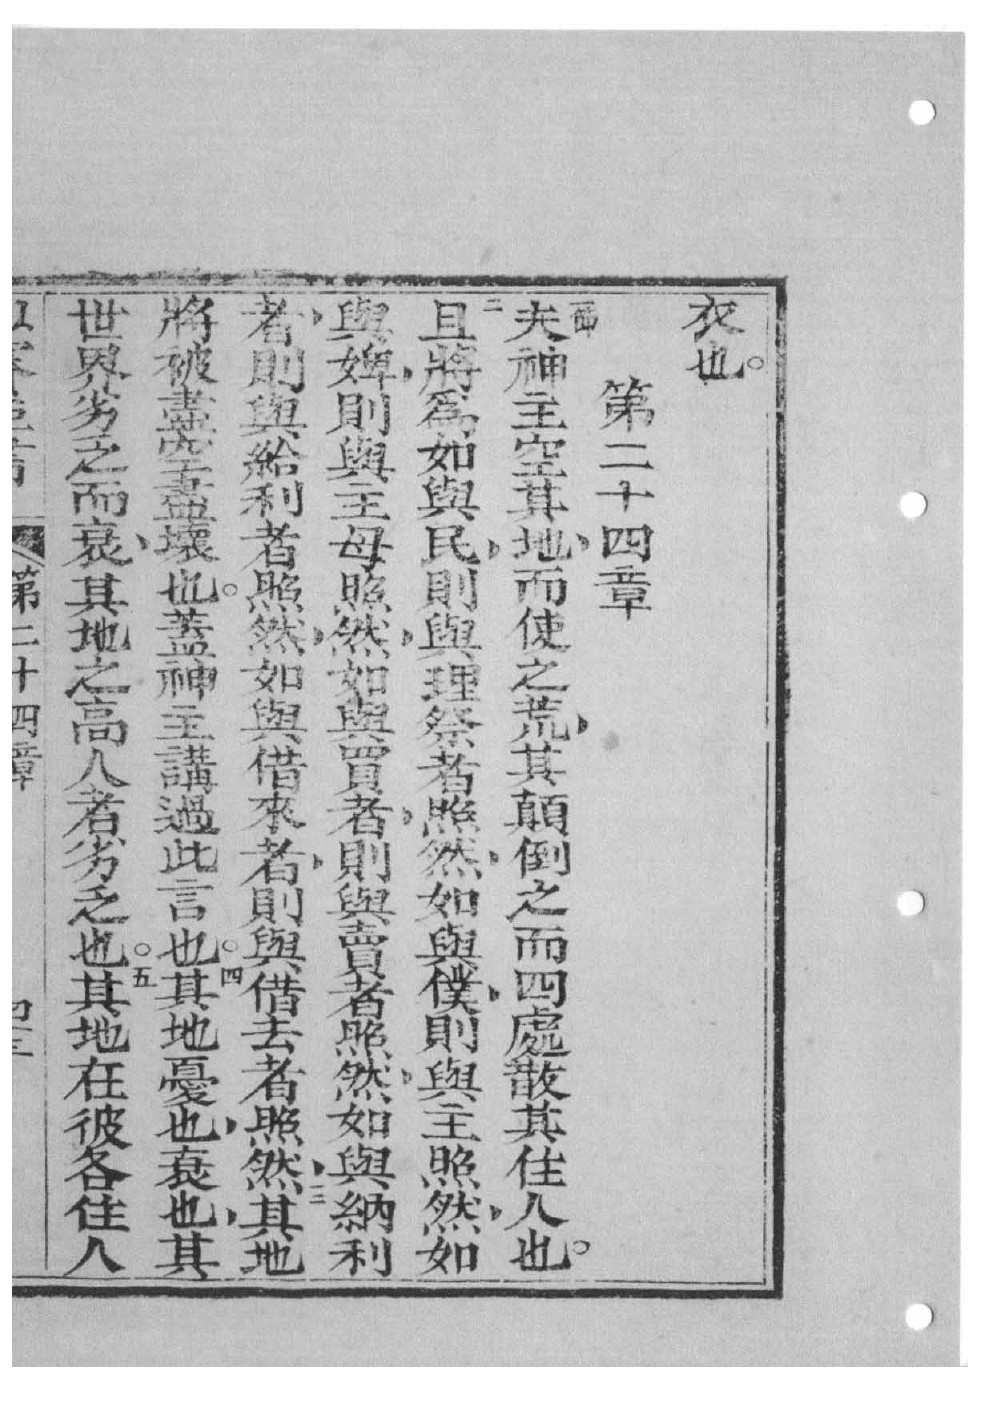 衣也。
第二十四章
夫神主空其地、而使之荒、其顛倒之而四處散其住人也。
二且將爲如與民、則與理祭者照然、如與僕、則與主照然、如
與婢、則與主母照然、如與買者、則與賣者照然、如與納利
者、則與給利者照然、如與借來者、則與借去者照然、三其地
將被盡空盡壞也。蓋神主講過此言也。四其地憂也、衰也、其
世界劣乏而衰、其地之高人者劣乏也。五其地在彼各住人
第二十四章